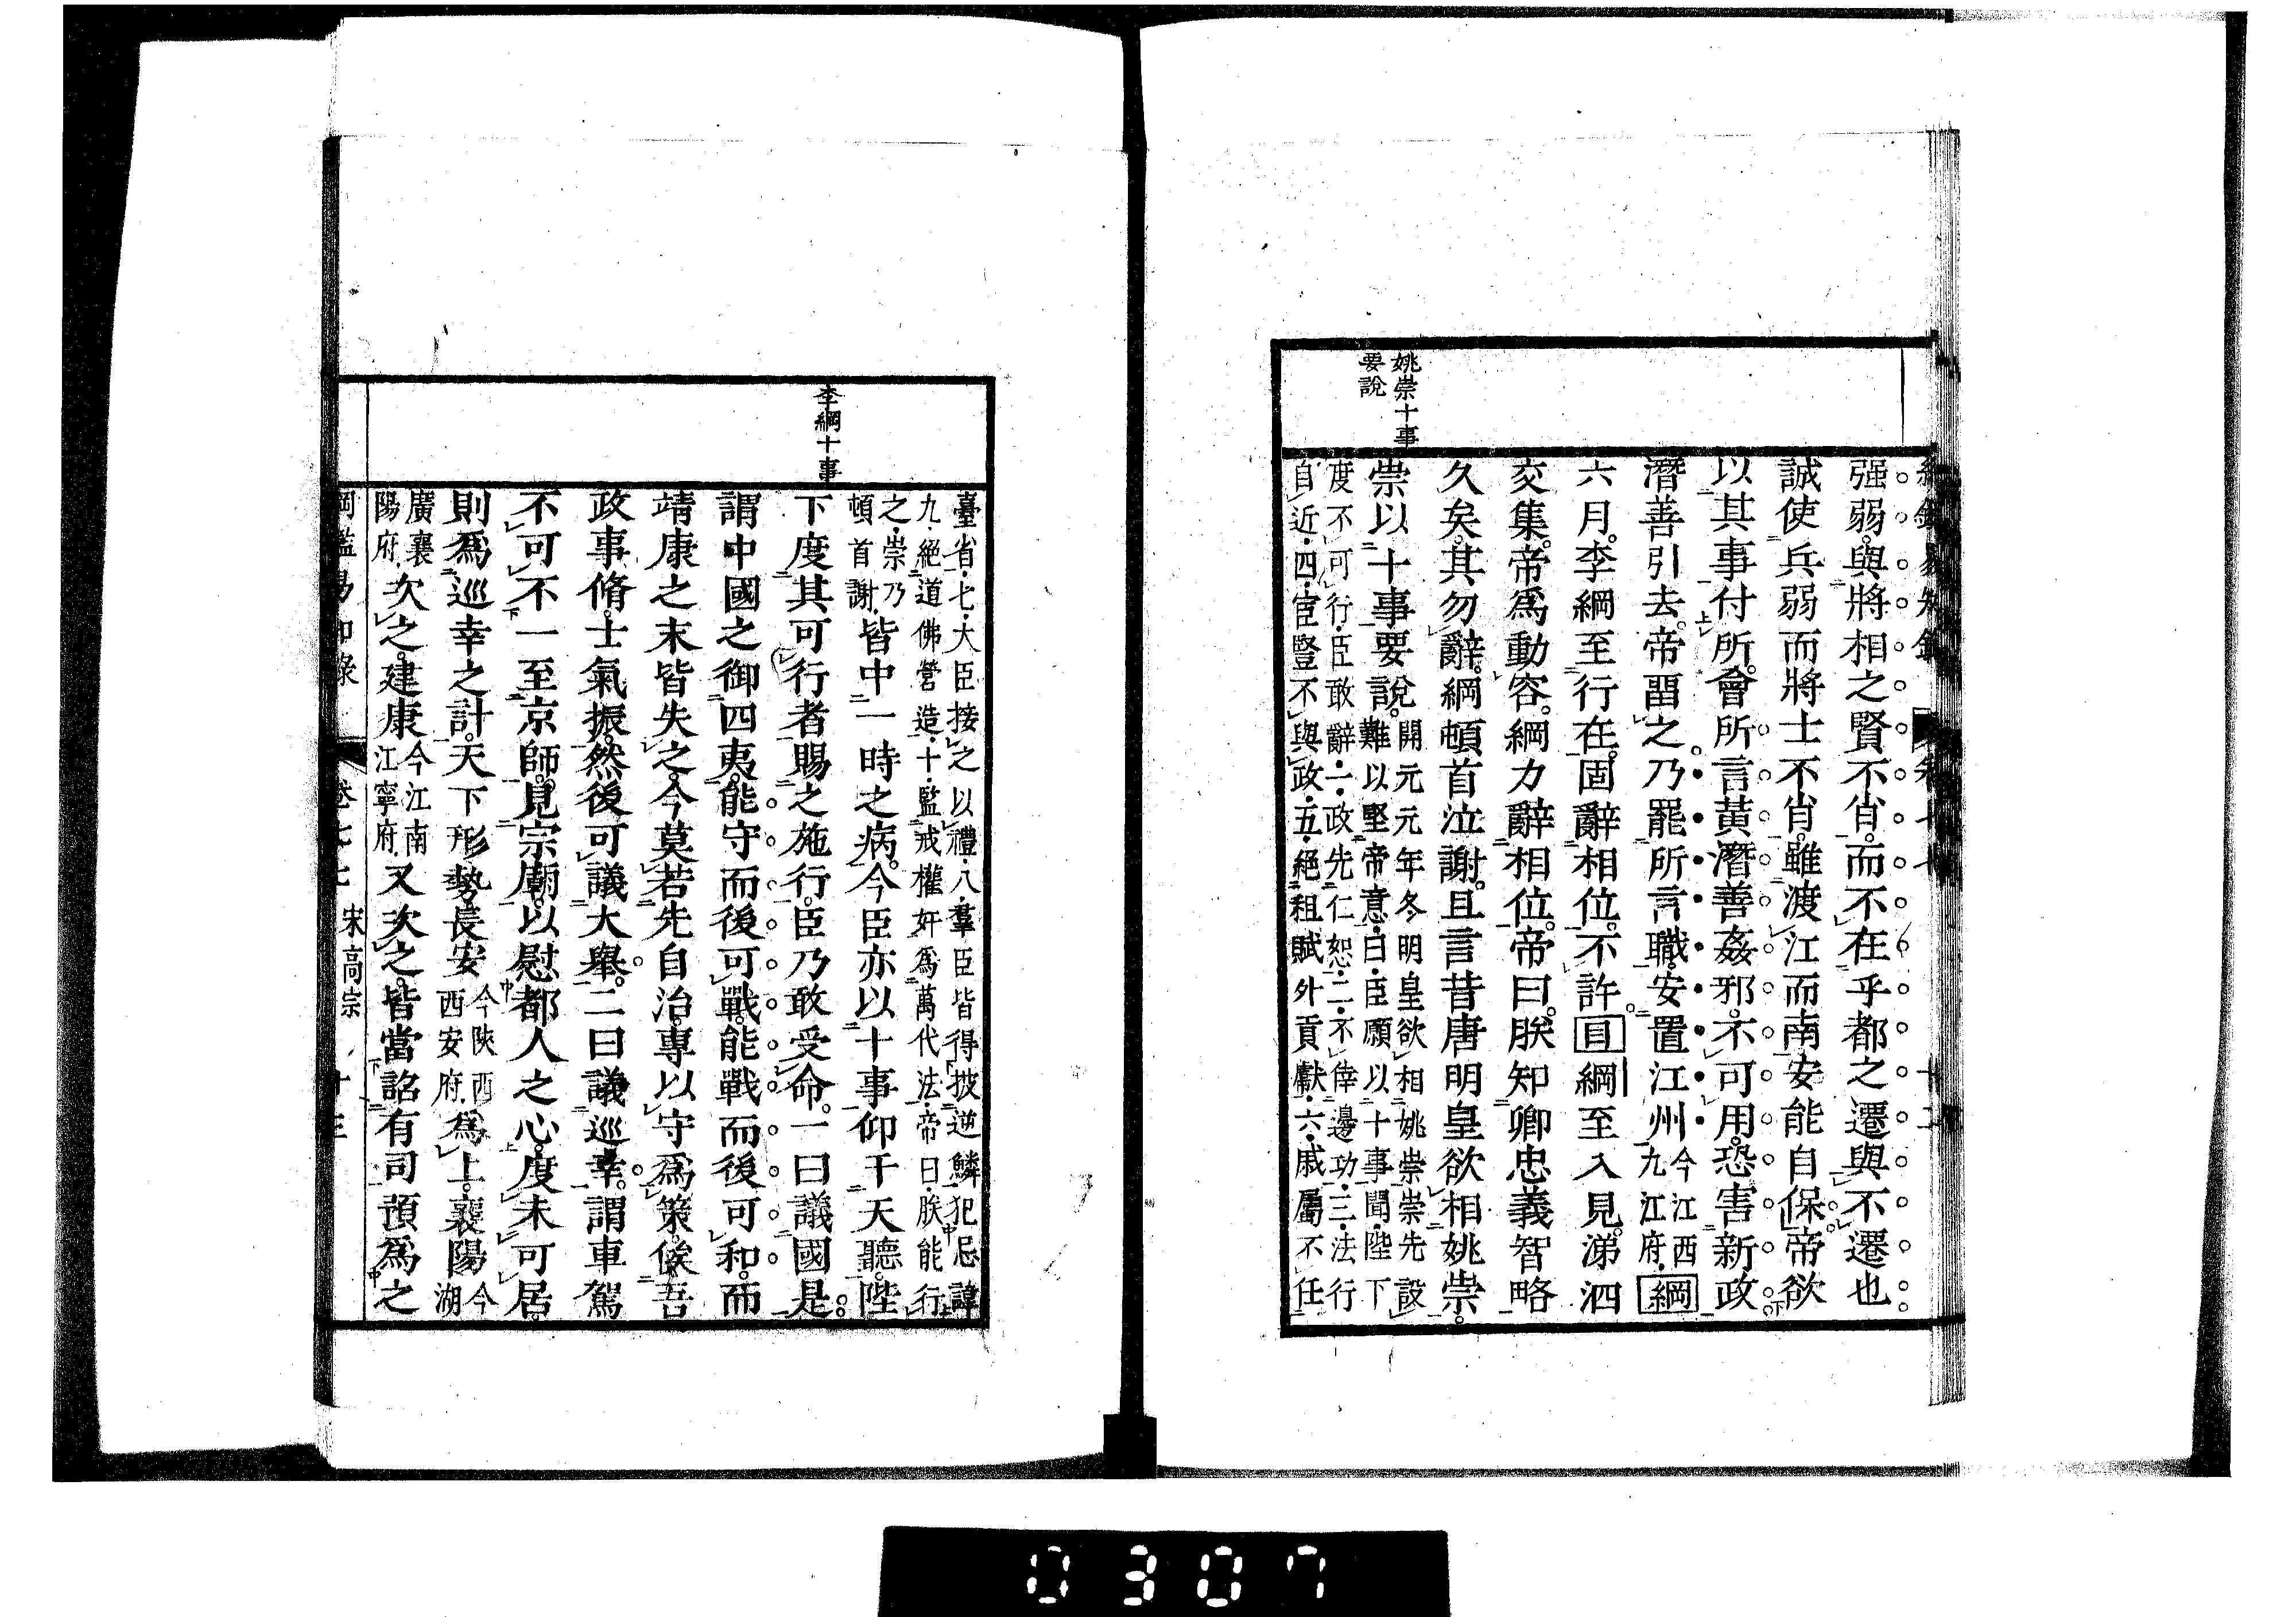 姚崇十事
要說
强弱。與將相之賢不肖。而不在乎都之遷與不遷也
誠使兵弱而將士不肖。雖渡江而南安能自保。帝欲
以其事付所。會所言黃潛善姦邪。不可用。恐害新政
潛善引去。帝畱之。乃罷所言職。安置江州今江西九江府綱
六月。李綱至行在。固辭相位。不許。目綱至入見。涕泗
交集。帝爲動容。綱力辭相位。帝曰。朕知卿忠義智略
久矣。其勿辭。綱頓首泣謝。且言昔唐明皇欲相姚崇。
崇以十事要說。開元元年冬明皇欲相姚崇崇先設
難以堅帝意。曰臣願以十事聞陛下
度不可行臣敢辭一政先仁恕二不倖邊功三法行
自近四宦豎不與政五絕租賦外貢獻六戚屬不任
李綱十事
臺省七大臣接之以禮八羣臣皆得披逆鱗犯忌諱
九絕道佛營造十監戒權奸爲萬代法帝曰朕能行
之崇乃頓首謝皆中一時之病。今臣亦以十事仰干天聽。陛
下度其可行者賜之施行。臣乃敢受命。一曰議國是。
謂中國之御四夷。能守而後可戰。能戰而後可和。而
靖康之末皆失之。今莫若先自治。專以守爲策。俟吾
政事脩。士氣振。然後可議大舉。二曰議巡幸。謂車駕
不可不一至京師。見宗廟。以慰都人之心。度未可居。
則爲巡幸之計。天下形勢。長安今陝西西安府爲上。襄陽今湖
廣襄陽府次之。建康今江南江寧府又次之。皆當詔有司預爲之
綱鑑易知錄 卷七七 宋高宗 十三